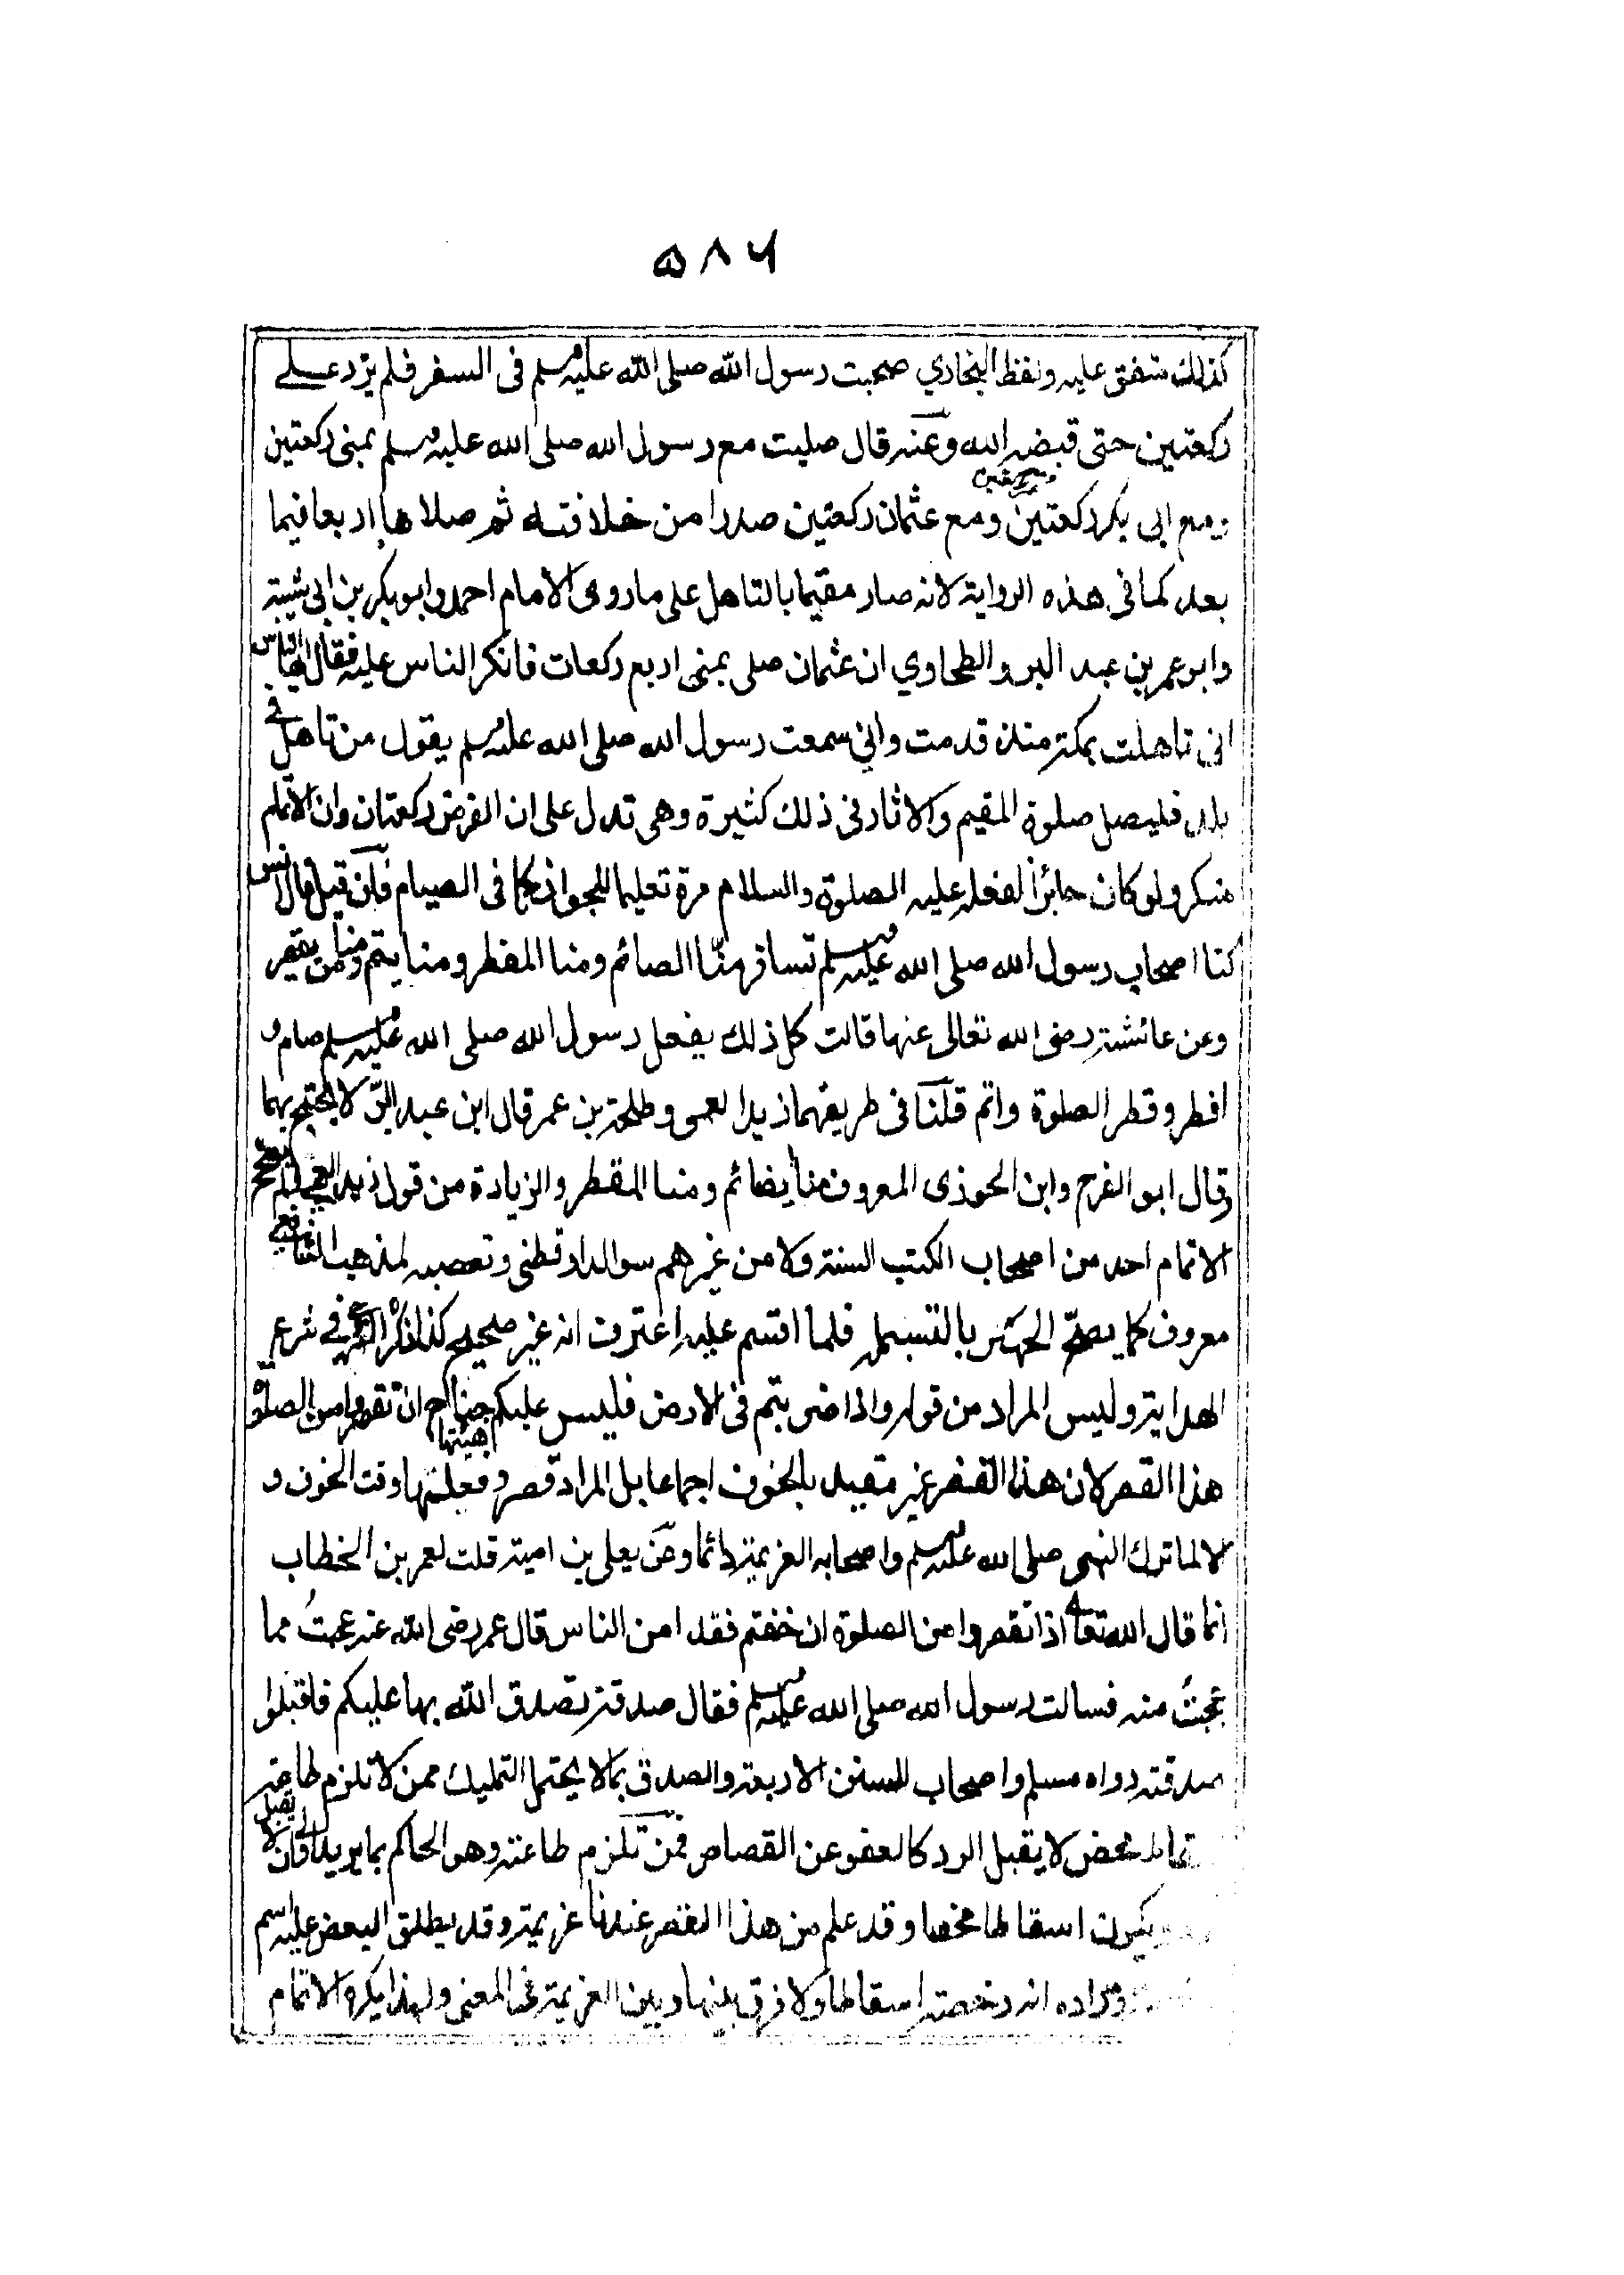 ٥٨٦
كذلك متفق عليه ولفظ البخاري صحبت رسول الله صلى الله عليه وسلم فى السفر فلم يزد على
ركعتين حتى قبضه الله وعنه قال صليت مع رسول الله صلى الله عليه وسلم بمنى ركعتين
ومع ابى بكر ركعتين ومع عثمان ركعتين صدرا من خلافته ثم صلاها اربعا فيما
بعد كما فى هذه الرواية لانه صار مقيما بالتاهل على ما روى الامام احمد وابو بكر بن ابى شيبة
وابو عمر بن عبد البر والطحاوي ان عثمان صلى بمنى اربع ركعات فانكر الناس عليه فقال ايها الناس
انى تاهلت بمكة منذ قدمت واني سمعت رسول الله صلى الله عليه وسلم يقول من تاهل فى
بلد فليصل صلوة المقيم والاثار فى ذلك كثيرة وهى تدل على ان الفرض ركعتان وان الاتمام
منكر ولو كان جائزا لفعله عليه الصلوة والسلام مرة تعليما للجواز كما فى الصيام فان قيل قال انس
كنا اصحاب رسول الله صلى الله عليه وسلم نسافر منّا الصائم ومنا المفطر ومنا يتم ومنا من يقصر
وعن عائشة رضى الله تعالى عنها قالت كل ذلك يفعل رسول الله صلى الله عليه وسلم صام و
افطر وقطر الصلوة واتم قلنا فى طريقهما زيدا لعمى وطلحة بن عمر قال ابن عبد البر لا يحتج بهما
وقال ابو الفرج وابن الجوزى المعروف منا يضائم ومنا المقطر والزيادة من قول زيد العمى فلم يصحح
الاتمام احد من اصحاب الكتب الستة ولا من غيرهم سوالدارقطنى وتعصبه لمذهب الشافعي
معروف كما يصحّ الجهر بالتسمية فلما اقسم عليه اعترف انه غير صحيح كذا ذكر فى شرع
الهداية وليس المراد من قوله واذا ضربتم فى الارض فليس عليكم جناح ان تقصروا من الصلوة
هذا القصر لان هذا القصر غير مقيد بالخوف اجماعا بل المراد قصر وفعلتها وقت الخوف و
لا لما ترك النبى صلى الله عليه وسلم واصحابه العزيمة دائما وعن يعلى بن امية قلت لعمر بن الخطاب
انما قال الله تعالى اذا تقصروا من الصلوة ان خفتم فقد امن الناس قال عمر رضى الله عنه عجبتُ مما
عجبتُ منه فسالت رسول الله صلى الله عليه وسلم فقال صدقة تصدق الله بها عليكم فاقبلوا
صدقته رواه مسلم واصحاب السنن الاربعة والصدق بما لا يحتمل التمليك ممن لا تلزم طاعته
محض لا يقبل الرد كالعفو عن القصاص فمن تلزم طاعته وهو الحاكم بما يريد
يكون اسقاطا محضا وقد علم من هذا القصر عندنا عزيمة وقد يطلق البعض عليه اسم
ومراده انه رخصة اسقاطا ولا فرق بينها وبين العزيمة فى المعنى ولهذا يكره الاتمام